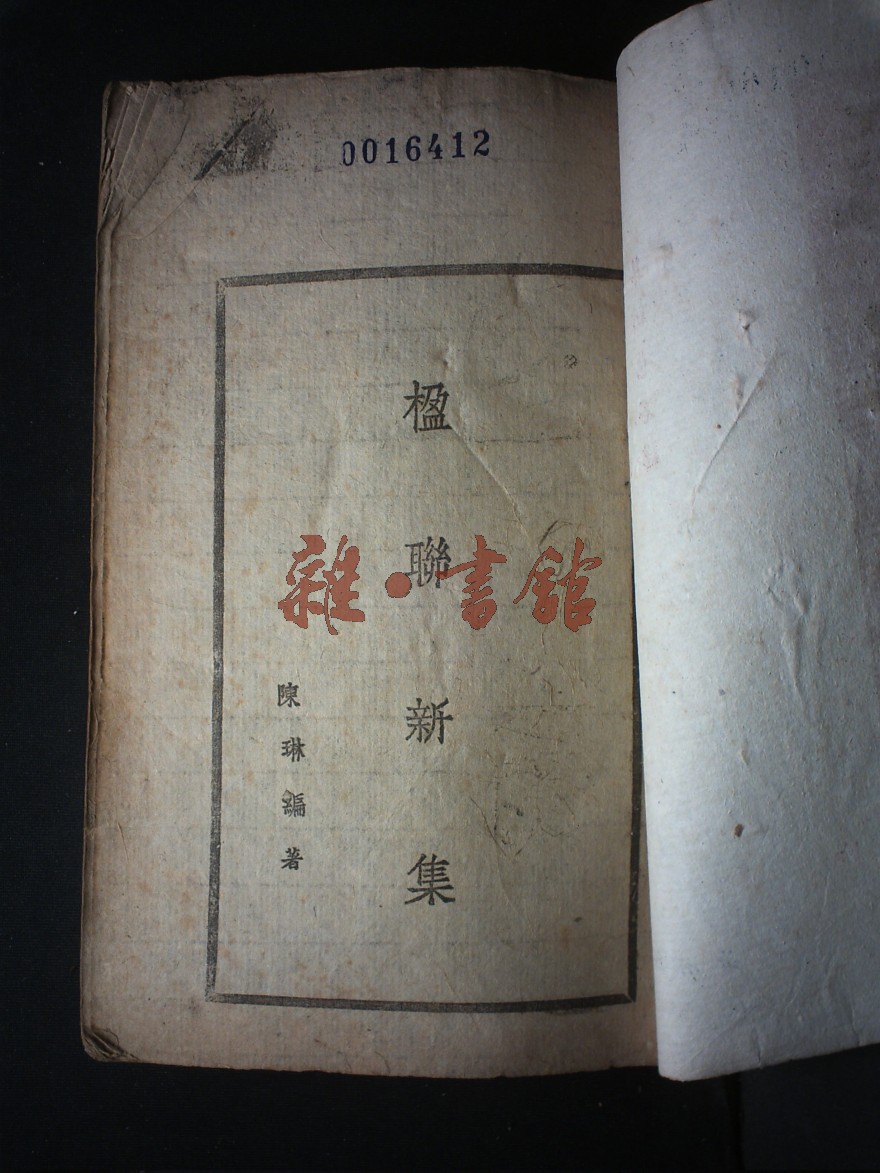 0016412
楹聯新集
雜·書館
陳琳編著